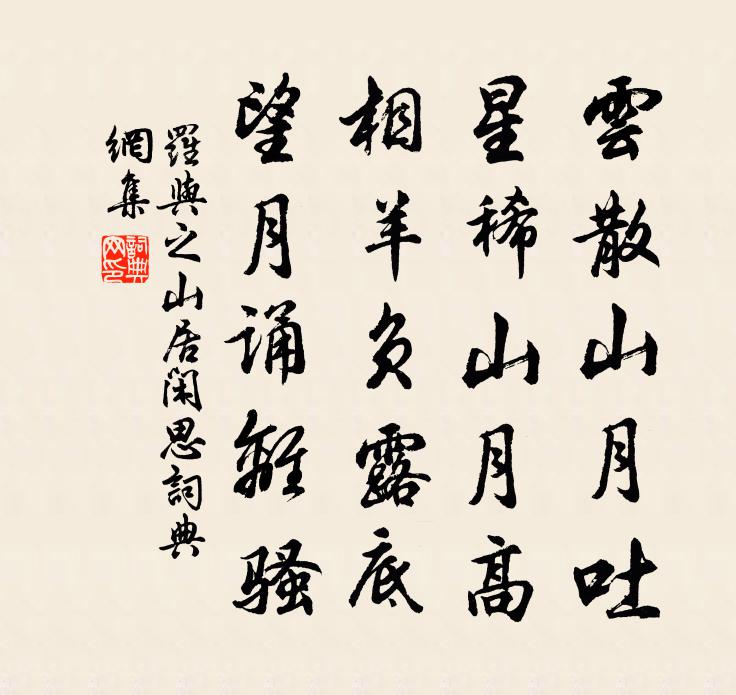 雲散山月吐
星稀山月高
相羊風露底
望月誦離騷
羅與之山居閑思詞典
網集
詞典
网印